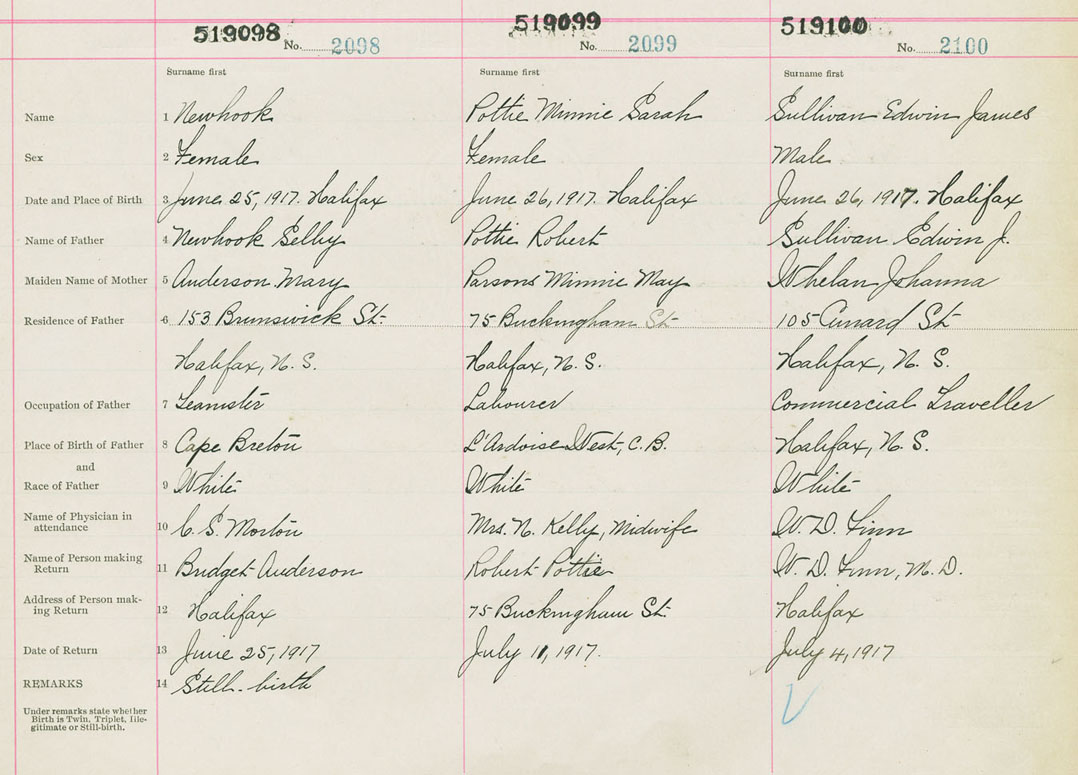 519098 No. 2098
519099 No. 2099
519100 No. 2100
Surname first
Surname first
Surname first
Name 1 Newhook Pottie Minnie Sarah Sullivan Edwin James
Sex 2 Female Female Male
Date and Place of Birth 3 June 25, 1917. Halifax June 26, 1917. Halifax June 26, 1917. Halifax
Name of Father 4 Newhook Selby Pottie Robert Sullivan Edwin J.
Maiden Name of Mother 5 Anderson Mary Parsons Minnie May Whelan Johanna
Residence of Father 6 153 Brunswick St. 75 Buckingham St 105 Cunard St
Halifax, N. S. Halifax, N. S. Halifax, N. S.
Occupation of Father 7 Teamster Labourer Commercial Traveller
Place of Birth of Father 8 Cape Breton L'Ardoise West, C. B. Halifax, N. S.
and
Race of Father 9 White White White
Name of Physician in
attendance 10 C. S. Morton Mrs. N. Kelly, Midwife W. D. Finn
Name of Person making
Return 11 Bridget Anderson Robert Pottie W. D. Finn, M. D.
Address of Person mak-
ing Return 12 Halifax 75 Buckingham St. Halifax
Date of Return 13 June 25, 1917 July 11, 1917. July 4, 1917
REMARKS 14 Still-birth
Under remarks state whether
Birth is Twin, Triplet, Ille-
gitimate or Still-birth.